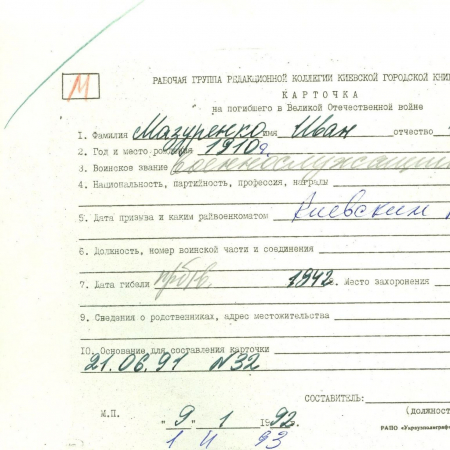 М
РАБОЧАЯ ГРУППА РЕДАКЦИОННОЙ КОЛЛЕГИИ КИЕВСКОЙ ГОРОДСКОЙ КНИ
КАРТОЧКА
на погибшего в Великой Отечественной войне
1. Фамилия Мазуренко имя Иван отчество
2. Год и место рождения 1910
3. Воинское звание военнослужащий
4. Национальность, партийность, профессия, награды
5. Дата призыва и каким райвоенкоматом Киевским
6. Должность, номер воинской части и соединения
7. Дата гибели 1942 8. Место захоронения
9. Сведения о родственниках, адрес местожительства
10. Основание для составления карточки
21.06.91 N32
СОСТАВИТЕЛЬ:
(должност
М.П. "9" 1 1992
РАПО «Укрвуполиграф
1 IV 93